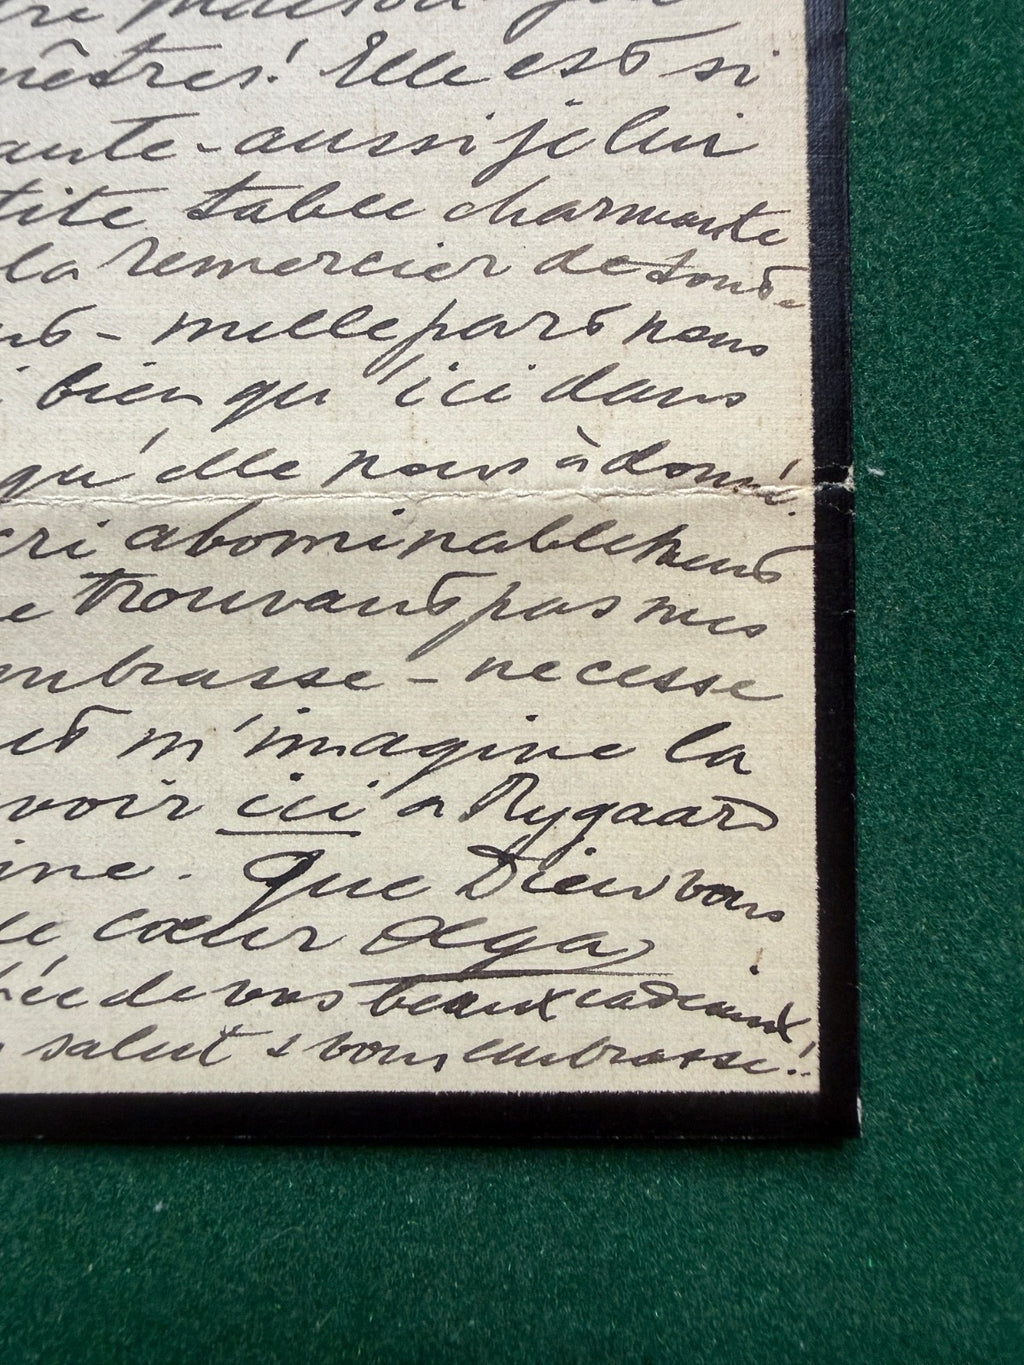 re maison
nêtres! Elle est si
ante - aussi je lui
tite table charmante
la remercier de tout
- nulle part nous
bien qu'ici dans
qu'elle nous à donné.
cri abominablement
e trouvant pas mes
mbrasse - ne cesse
et m'imagine la
voir ici a Rygaard
ine. Que Dieu vous
de cœur Olga
de vos beaux cadeaux
salut & vous embrasse!!